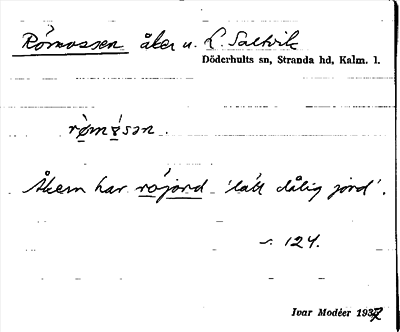 Römossen åker u. L. Saltvik
Döderhults sn, Stranda hd, Kalm. l.
römosən.
Åkern har röjord 'lätt dålig jord'.
s. 124.
Ivar Modéer 1937